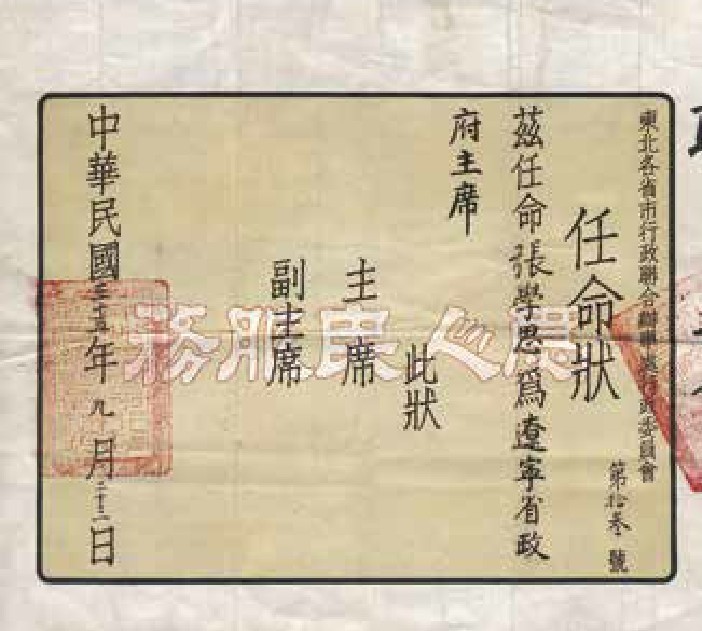 東北各省市行政聯合辦事處行政委員會
第拾叁號
任命狀
茲任命張學思爲遼寧省政
府主席
此狀
主席
副主席
中華民國三十五年九月二十二日
爲人民服務